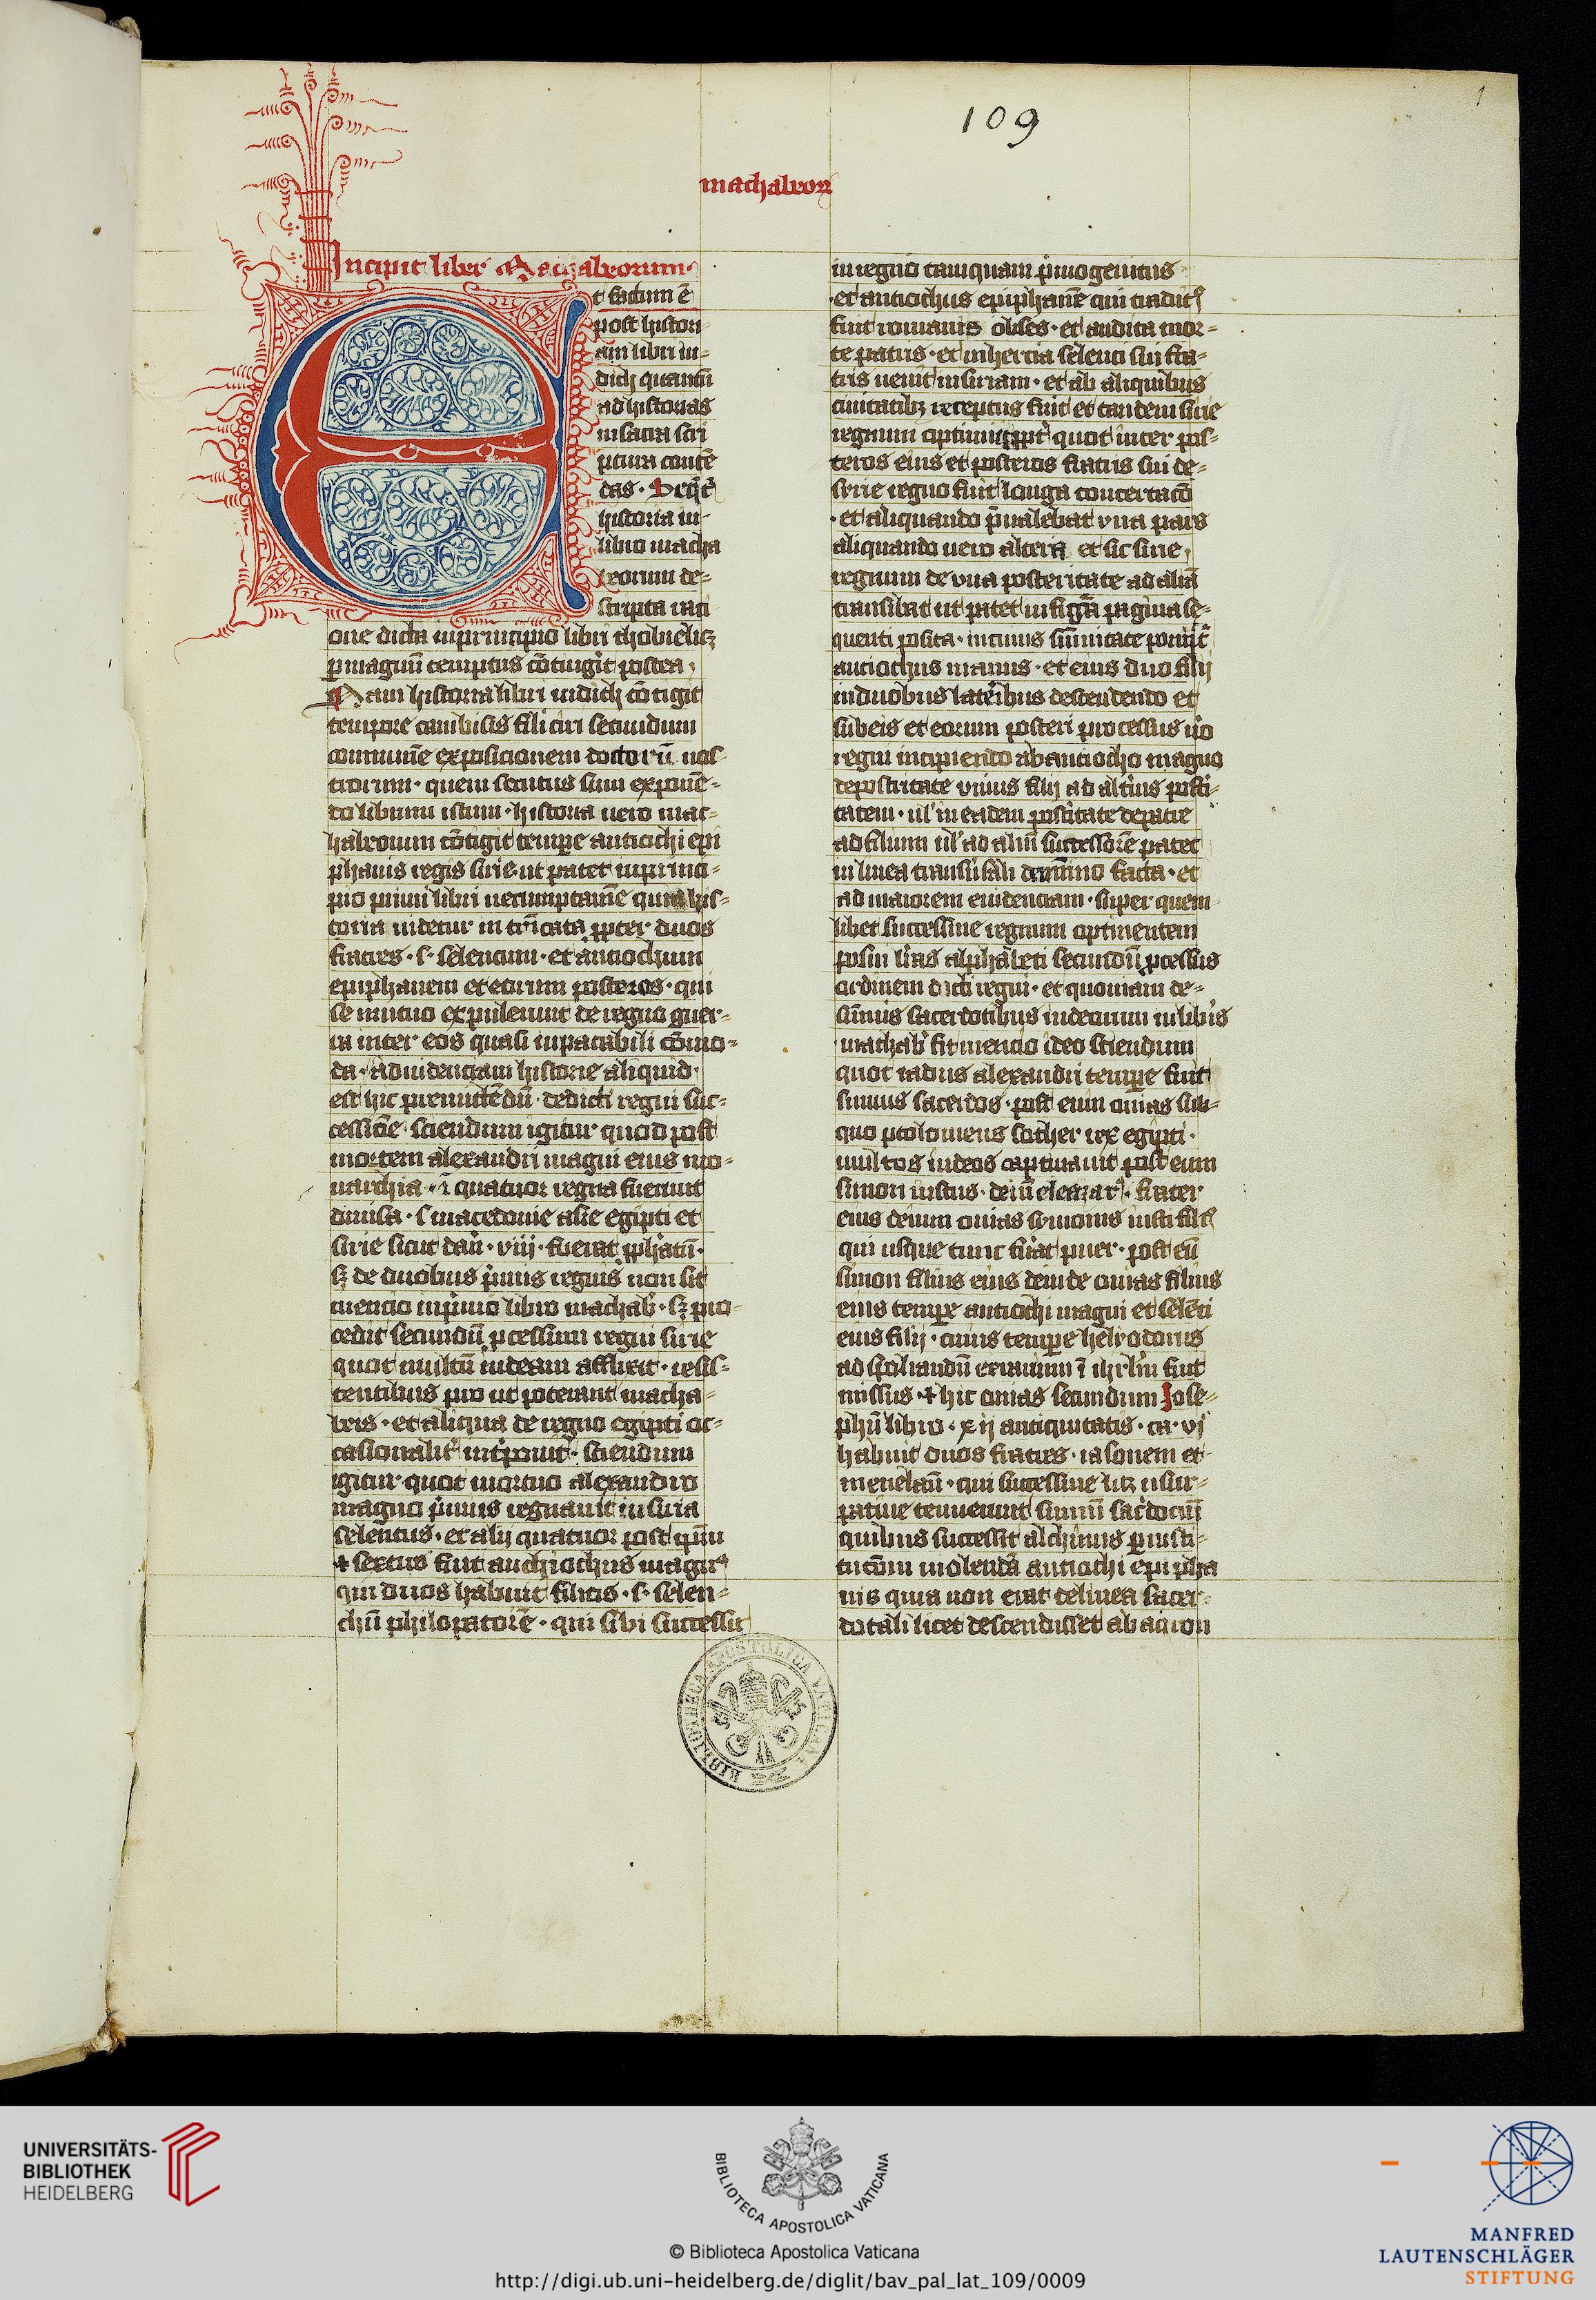 109
1
machabeoꝝ
Incipit liber Machabeorum·
t factum ē
post histori-
am libri iu-
dich quantū
ad historias
in sacra scri
ptura contē
tas· Seqͥt᷑
historia in
libro macha
beorum de-
scripta raci
one dicta in principio libri thobie licꝫ
ꝑ magnū temptus cōtingͥt postea·
Nam historia libri iudich cōtigit
tempore cambisis filii ciri secundum
communē exposicionem doctorū nos-
trorum· quem secutus sum exponē-
do librum istum· historia uero mac-
habeorum cōtigit temꝑe antiochi epi
phanis regis sirie ut patet in princi-
pio primi libri uerumptamē quia his-
toria uidetur intͥcata ꝓpter duos
fratres· s· seleucum· et antiochum
epiphanem et eorum posteros· qui
se mutuo expulerunt de regno guer-
ra inter eos quasi inpacabili cōmo-
ta· ad euidenciam historie aliquid·
est hic premittēdū· de dicti regni suc-
cessiōe· sciendum igitur quod post
mortem alexandri magni eius mo-
narchia· ī quatuor regna fuerunt
diuisa· s macedonie asie egipti et
sirie sicut dan̄· viij· fuerat ꝓphatū·
sꝫ de duobus pͥmis regnis non fit
mencio in pͥmo libro machab᷑· sꝫ pro-
cedit secundū ꝓcessum regni sirie
quot multū iudeam afflixit· resis-
tentibus pro ut poterant macha-
beis· et aliqua de regno egipti oc-
casionalit᷑ intͤponit᷑· sciendum
igitur quot mortuo alexandro
magno pͥmus regnauit in siria
seleucus· et alij quatuor post ipm̄
⁊ sextus fuit anthiochus magnꝰ
qui duos habuit filios· s· seleu-
chū philopatorē· qui sibi successit
in regno tamquam pͥmogenitus
·et antiochus epiphanē qui traditꝰ
fuit romanis obses· et audita mor-
te patris· et inhercia seleuci sui fra-
tris uenit in siriam· et ab aliquibus
ciuitatibꝫ receptus fuit et tandem sirie
regnum optinuit ꝓpt᷑ quot inter pos-
teros eius et posteros fratris sui de-
sirie regno fuit longa concertacō
·et aliquando pͥualebat vna pars
aliquando uero altera et sic sirie·
regnum de vna posteritate ad aliā
transibat ut patet in figͥa pagina se-
quenti posita· in cuius sūmitate ponit᷑
antiochus magnus· et eius duo filij
in duobus lateribus descendendo et
sub eis et eorum posteri processus uͦo
regni incipiendo ab antiocho magno
de postͥitate vnius filij ad altͥius postͥi-
tatem· ul' in eadem postͥitate de patre
ad filium ul' ad aliū successorē patet
in linea transuͤsali de mīnio facta· et
ad maiorem euidenciam· super quem-
libet successiue regnum optinentem
posui lr̄as alphabeti secundū ꝓcessus
ordinem dicti regni· et quoniam de-
sūmis sacerdotibus iudeorum in libris
machab᷑ fit mencio ideo sciendum
quot iadus alexandri temꝑe fuit
sūmus sacerdos· post eum onias sub-
quo ptolomeus sother rex egipti·
multos iudeos captiuauit post eum
simon iustus· dein̄ eleazarꝰ· frater
eius deinm onias symonis iusti filiꝰ
qui usque tunc fuͤat puer· post eū
simon filius eius deinde onias filius
eius temꝑe antiochi magni et seleuci
eius filij· cuius temꝑe helyodorus
ad spoliandū erarium ī ihrl̄m fuit
missus· ⁊ hic onias secundum Jose-
phū libro· xij antiquitatis· ca· vj
habuit duos fratres· iasonem et
menelaū· qui successiue licꝫ usur-
patiue tenuerunt sūmū sac᷑docium
quibus successit alchimus ꝑ insti-
tucōm uiolentā antiochi epipha
nis quia non erat de linea sacer-
dotali licet descendisset ab aaron
BIBLIOTHECA APOSTOLICA VATICANA
UNIVERSITÄTS-
BIBLIOTHEK
HEIDELBERG
BIBLIOTECA APOSTOLICA VATICANA
© Biblioteca Apostolica Vaticana
http://digi.ub.uni-heidelberg.de/diglit/bav_pal_lat_109/0009
MANFRED
LAUTENSCHLÄGER
STIFTUNG